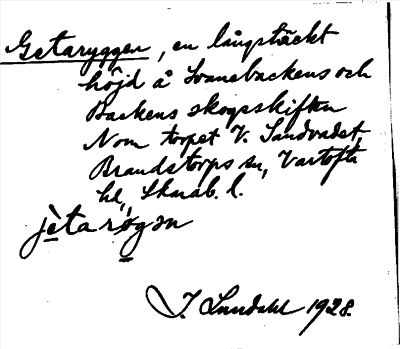 Getaryggen, en långsträckt
höjd å Svanebackens och
Backens skogsskiften
Nom torpet V. Sandvadet,
Brandstorps sn, Vartofta
hd, Skarab. l.
jètarøgən
J. Sundahl 1928.